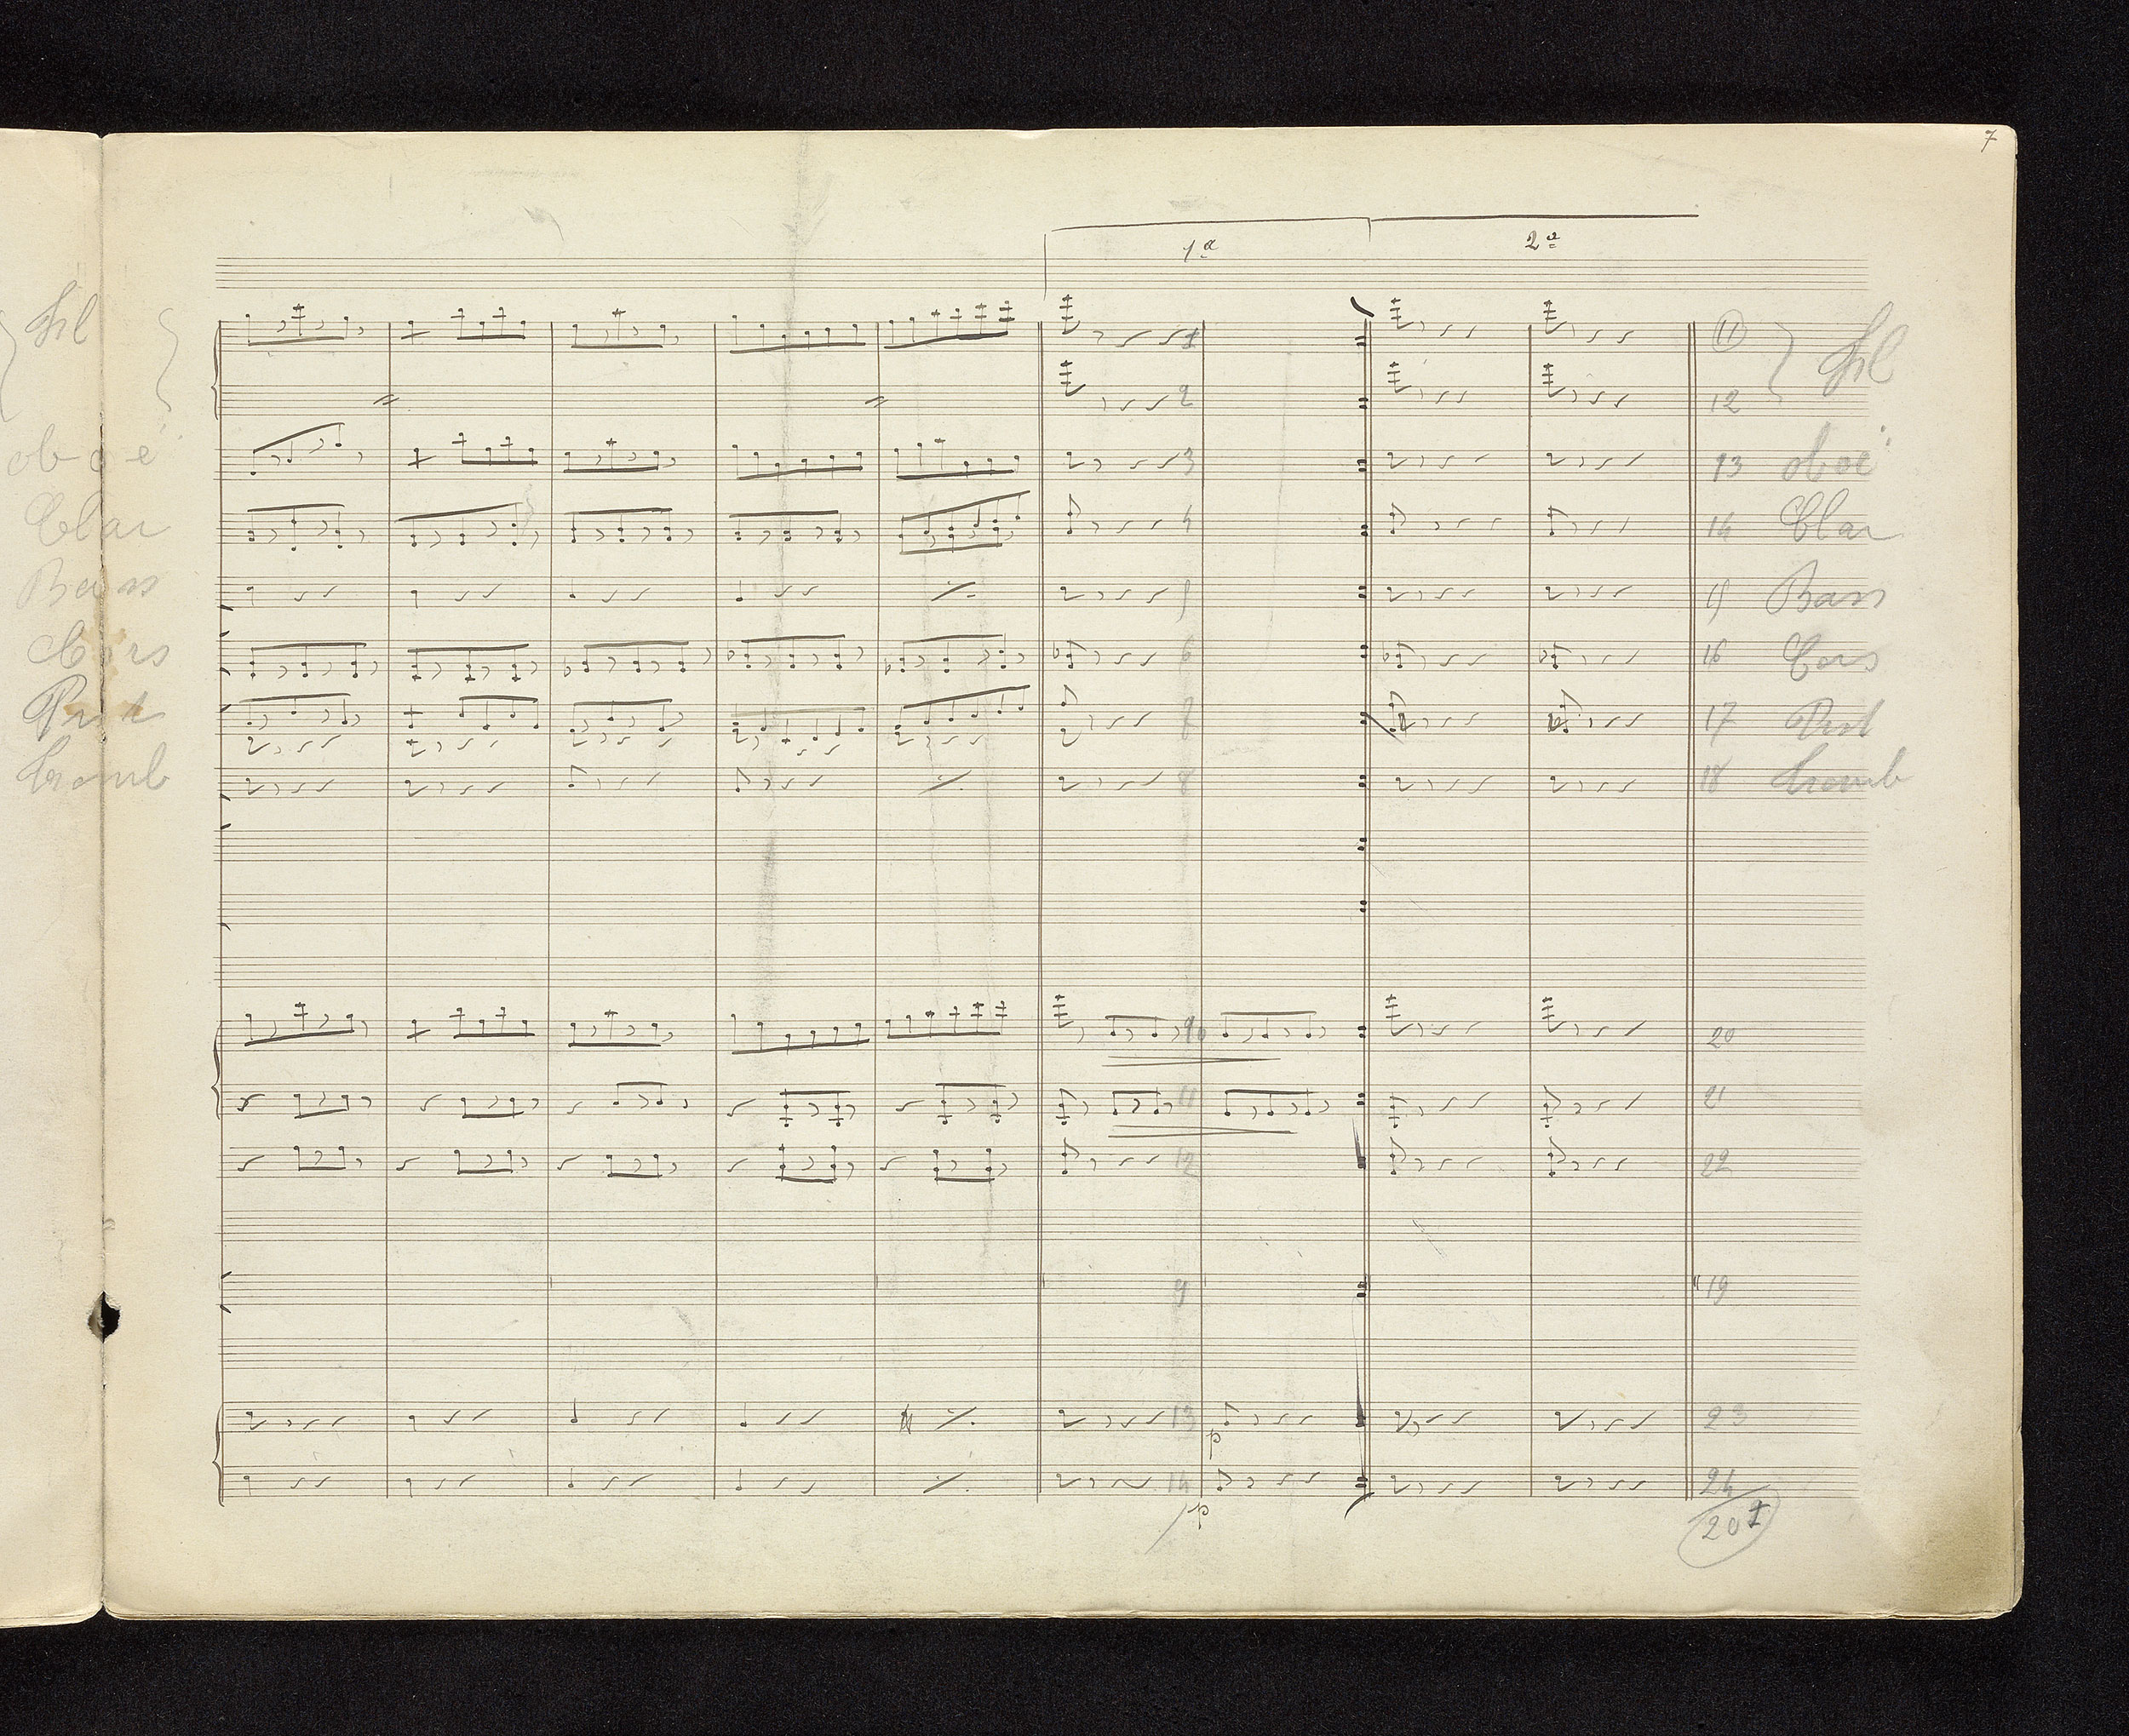 7
1ª 2ª
fl 1 11 fl
2 12
oboë 3 13 oboë
Clar 4 14 Clar
Bass 5 15 Bass
Cors 6 16 Cors
Pist 7 17 Pist
tromb 8 18 tromb
10 20
11 21
12 22
9 19
13 23
p
14 24
p
201